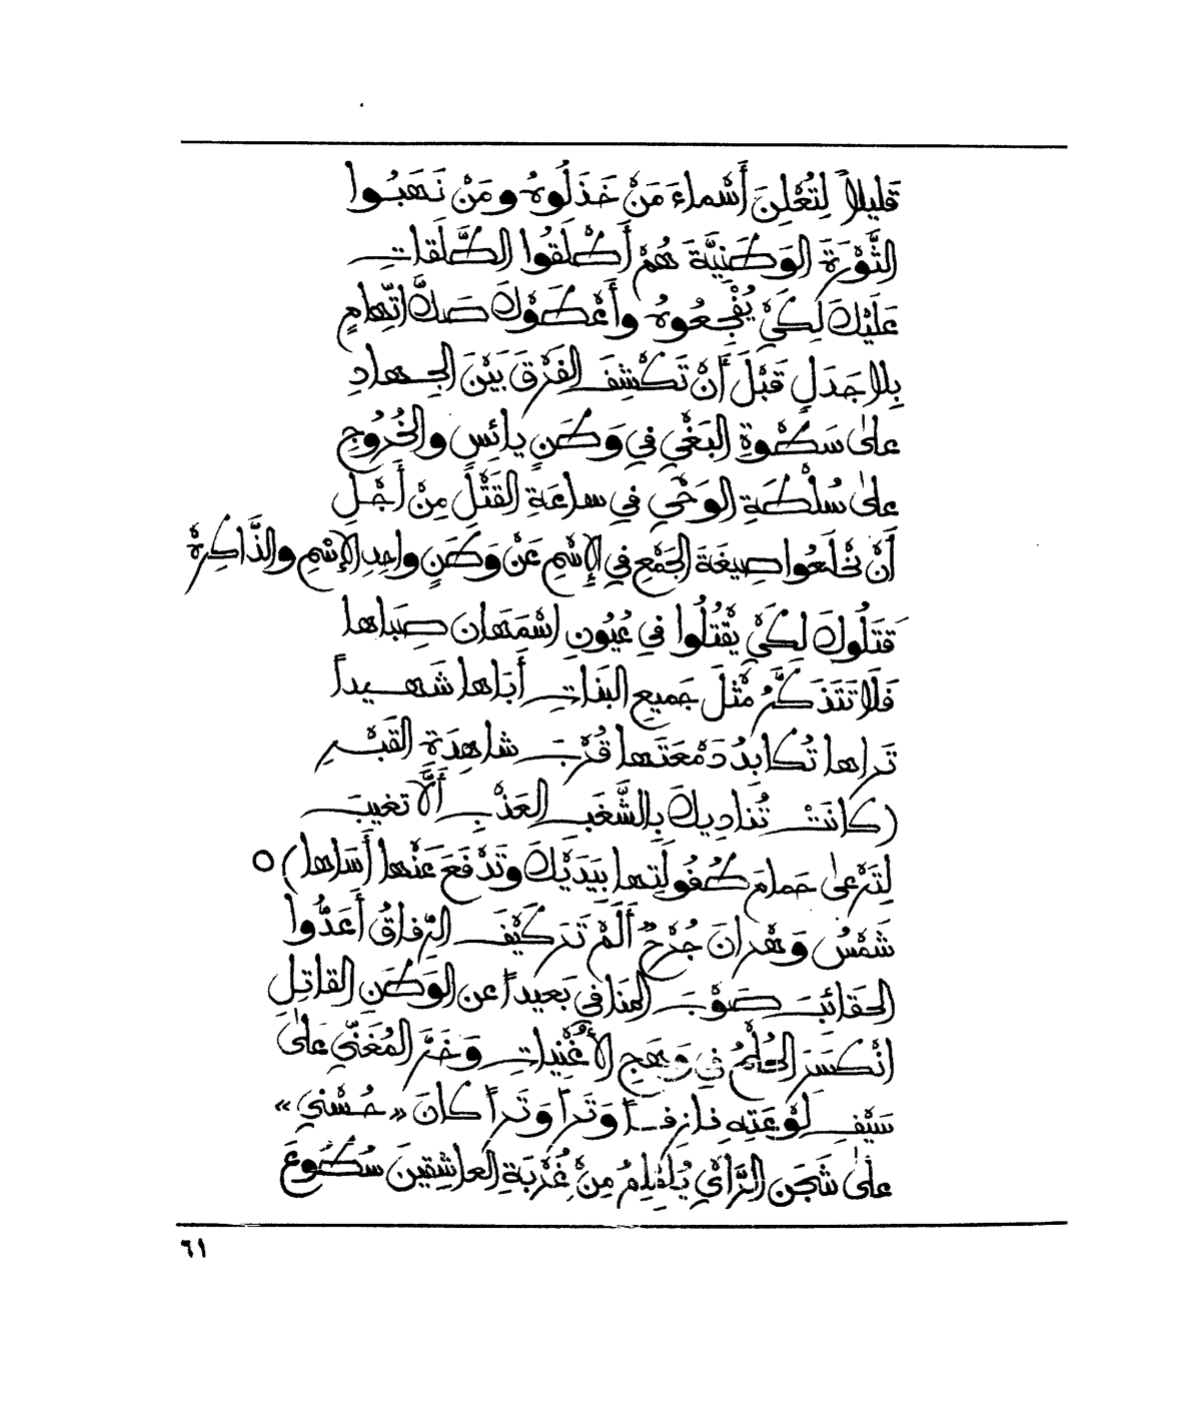 قَليلاً لِتُعْلِنَ أَسْماءَ مَنْ خَذَلُوهُ ومَنْ نَهَبُوا
الثَّوْرَةَ الوَطَنِيَّةَ هُمْ أَطْلَقُوا الطَّلَقاتِ
عَلَيْكَ لِكَيْ يُفْجِعُوهُ وأَعْطَوْكَ صَكَّ اتِّهامٍ
بِلا جَدَلٍ قَبْلَ أَنْ تَكْشِفَ الفَرْقَ بَيْنَ الجِهادِ
على سَطْوَةِ البَغْيِ في وَطَنٍ يائِسٍ والخُرُوجِ
على سُلْطَةِ الوَحْيِ في ساعَةِ القَتْلِ مِنْ أَجْلِ
أَنْ تَخْلَعُوا صِيغَةَ الجَمْعِ في الإِسْمِ عَنْ وَطَنٍ واحِدِ الإِسْمِ والذَّاكِرهْ
قَتَلُوكَ لِكَيْ يَقْتُلُوا في عُيُونِ اسْمَهَان صِبَاها
فَلَا تَتَذَكَّرُ مَثْلَ جَميعِ البَنَاتِ أَبَاها شَهيداً
تَراها تُكابِدُ دَمْعَتَها قُرْبَ شاهِدَةِ القَبْرِ
(كانَتْ تُنادِيكَ بِالشَّغَبِ العَذْبِ أَلَّا تغيبَ
لِتَرْعى حَمامَ طُفُولَتِها بِيَدَيْكَ وتَدْفَعَ عَنْها أَسَاها) ○
شَمْسُ وَهْرانَ جُرْحٌ أَلَمْ تَرَ كَيْفَ الرِّفاقُ أَعَدُّوا
الحَقائبَ صَوْبَ المَنافي بَعيداً عن الوَطَنِ القاتِلِ
انْكَسَرَ الحُلْمُ في وَهَجِ الأُغْنِياتِ وَخَرَّ المُغَنّي عَلىٰ
سَيْفِ لَوْعَتِهِ نازِفاً وَتَراً وَتَراً كانَ «حُسْني»
علىٰ شَجَنِ الرَّايِ يُلَمْلِمُ مِنْ غُرْبَةِ العاشِقِينَ سُطُوعَ
٦١